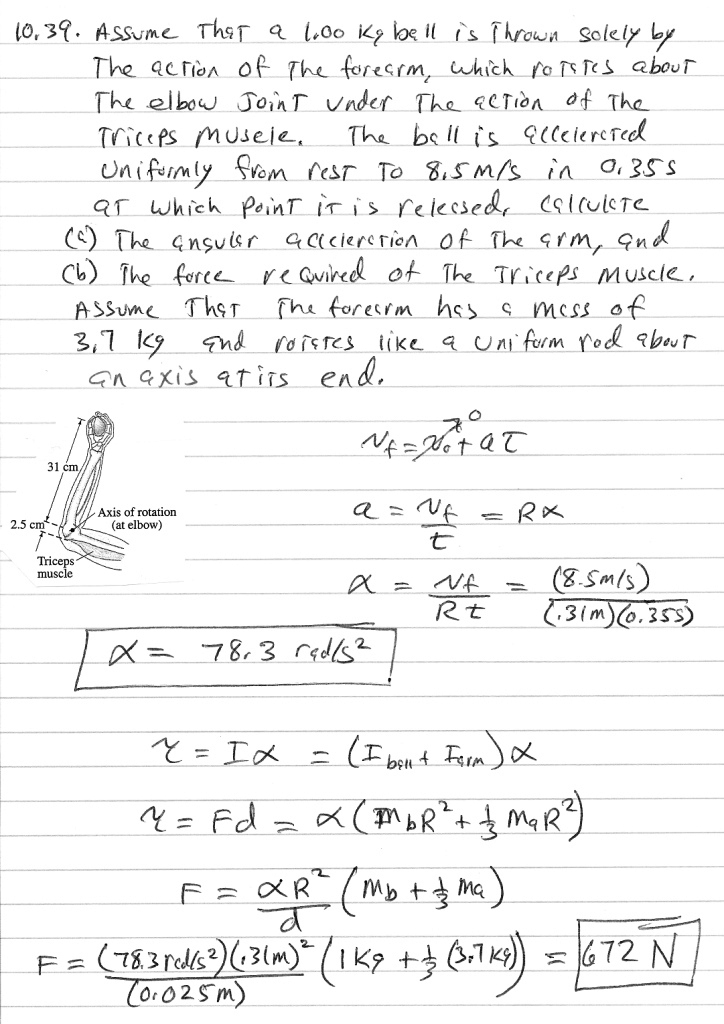 10.39. Assume That a 1.00 Kg ball is Thrown solely by
The action of The forearm, which rotates about
The elbow Joint under The action of The
Triceps Muscle. The ball is accelerated
Uniformly from rest To 8.5 m/s in 0.35 s
at which point it is released, calculate
(a) The angular acceleration of The arm, and
(b) The force required of The Triceps muscle.
Assume That The forearm has a mass of
3.7 kg and rotates like a uniform rod about
an axis at its end.
31 cm
2.5 cm
Axis of rotation
(at elbow)
Triceps
muscle
v_f = v_0 + at → 0
a = v_f / t = Rα
α = v_f / Rt = (8.5 m/s) / (.31m)(0.35s)
α = 78.3 rad/s²
τ = Iα = (I_ball + I_arm)α
τ = Fd = α(m_b R² + 1/3 m_a R²)
F = αR²/d (m_b + 1/3 m_a)
F = (78.3 rad/s²)(.31m)² / (0.025m) (1 Kg + 1/3 (3.7 Kg)) = 672 N